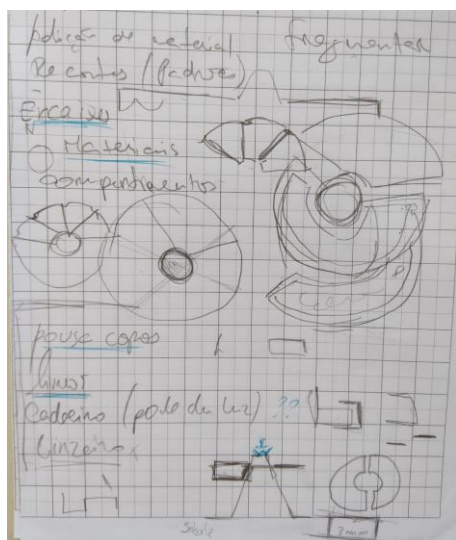 adição de material fragmentar
Recortes (Padrões)
Encaixe
Materiais
Compartimentos
pousa copos
Candeeiro (pode dar luz) ??
Cinzeiro
3 mm